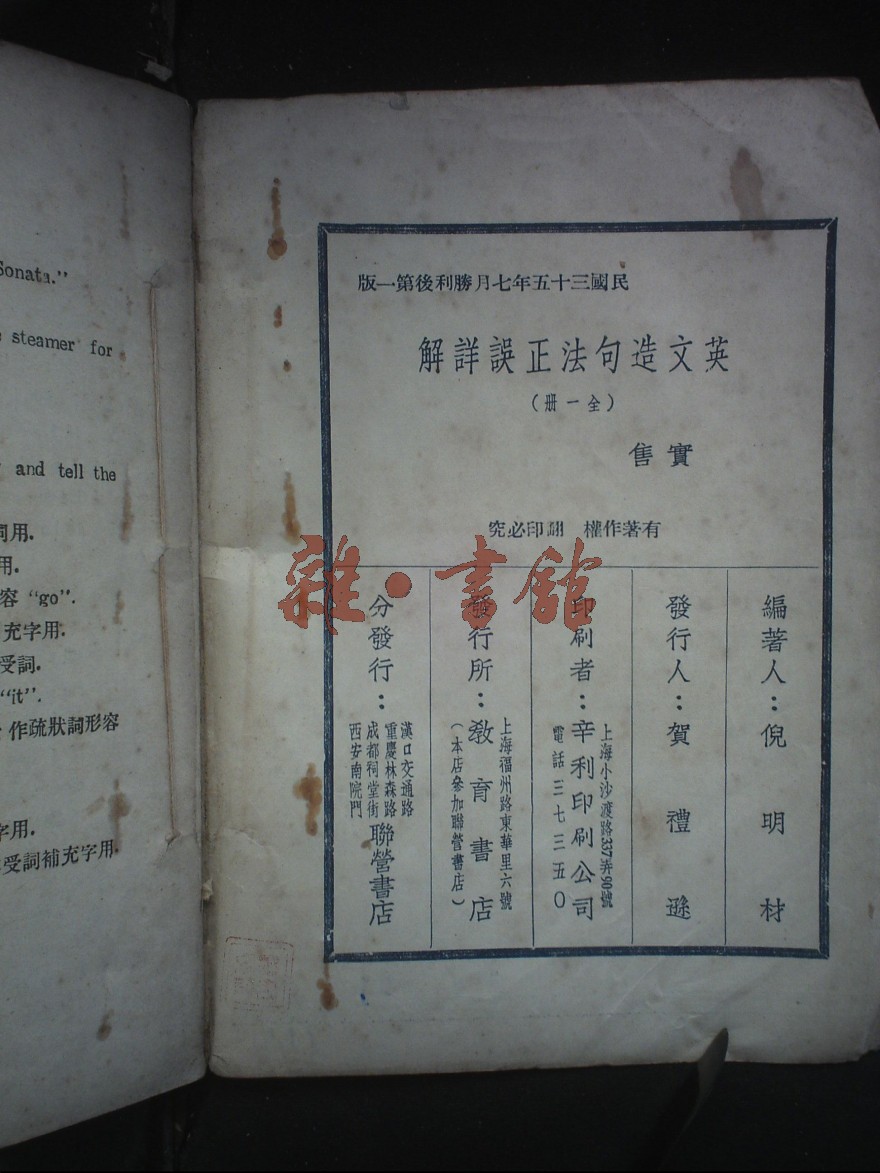 Sonata."
steamer for
and tell the
詞用.
用.
容 "go".
充字用.
受詞.
"it".
作疏狀詞形容
字用.
受詞補充字用.
民國三十五年七月勝利後第一版
英文造句法正誤詳解
(全一册)
實售
有著作權 翻印必究
編著人：倪明材
發行人：賀禮遜
印刷者：辛利印刷公司
上海小沙渡路337弄90號
電話三七三五〇
發行所：教育書店
上海福州路東華里六號
(本店參加聯營書店)
分發行：
漢口交通路
重慶林森路
成都祠堂街
西安南院門
聯營書店
雜·書館